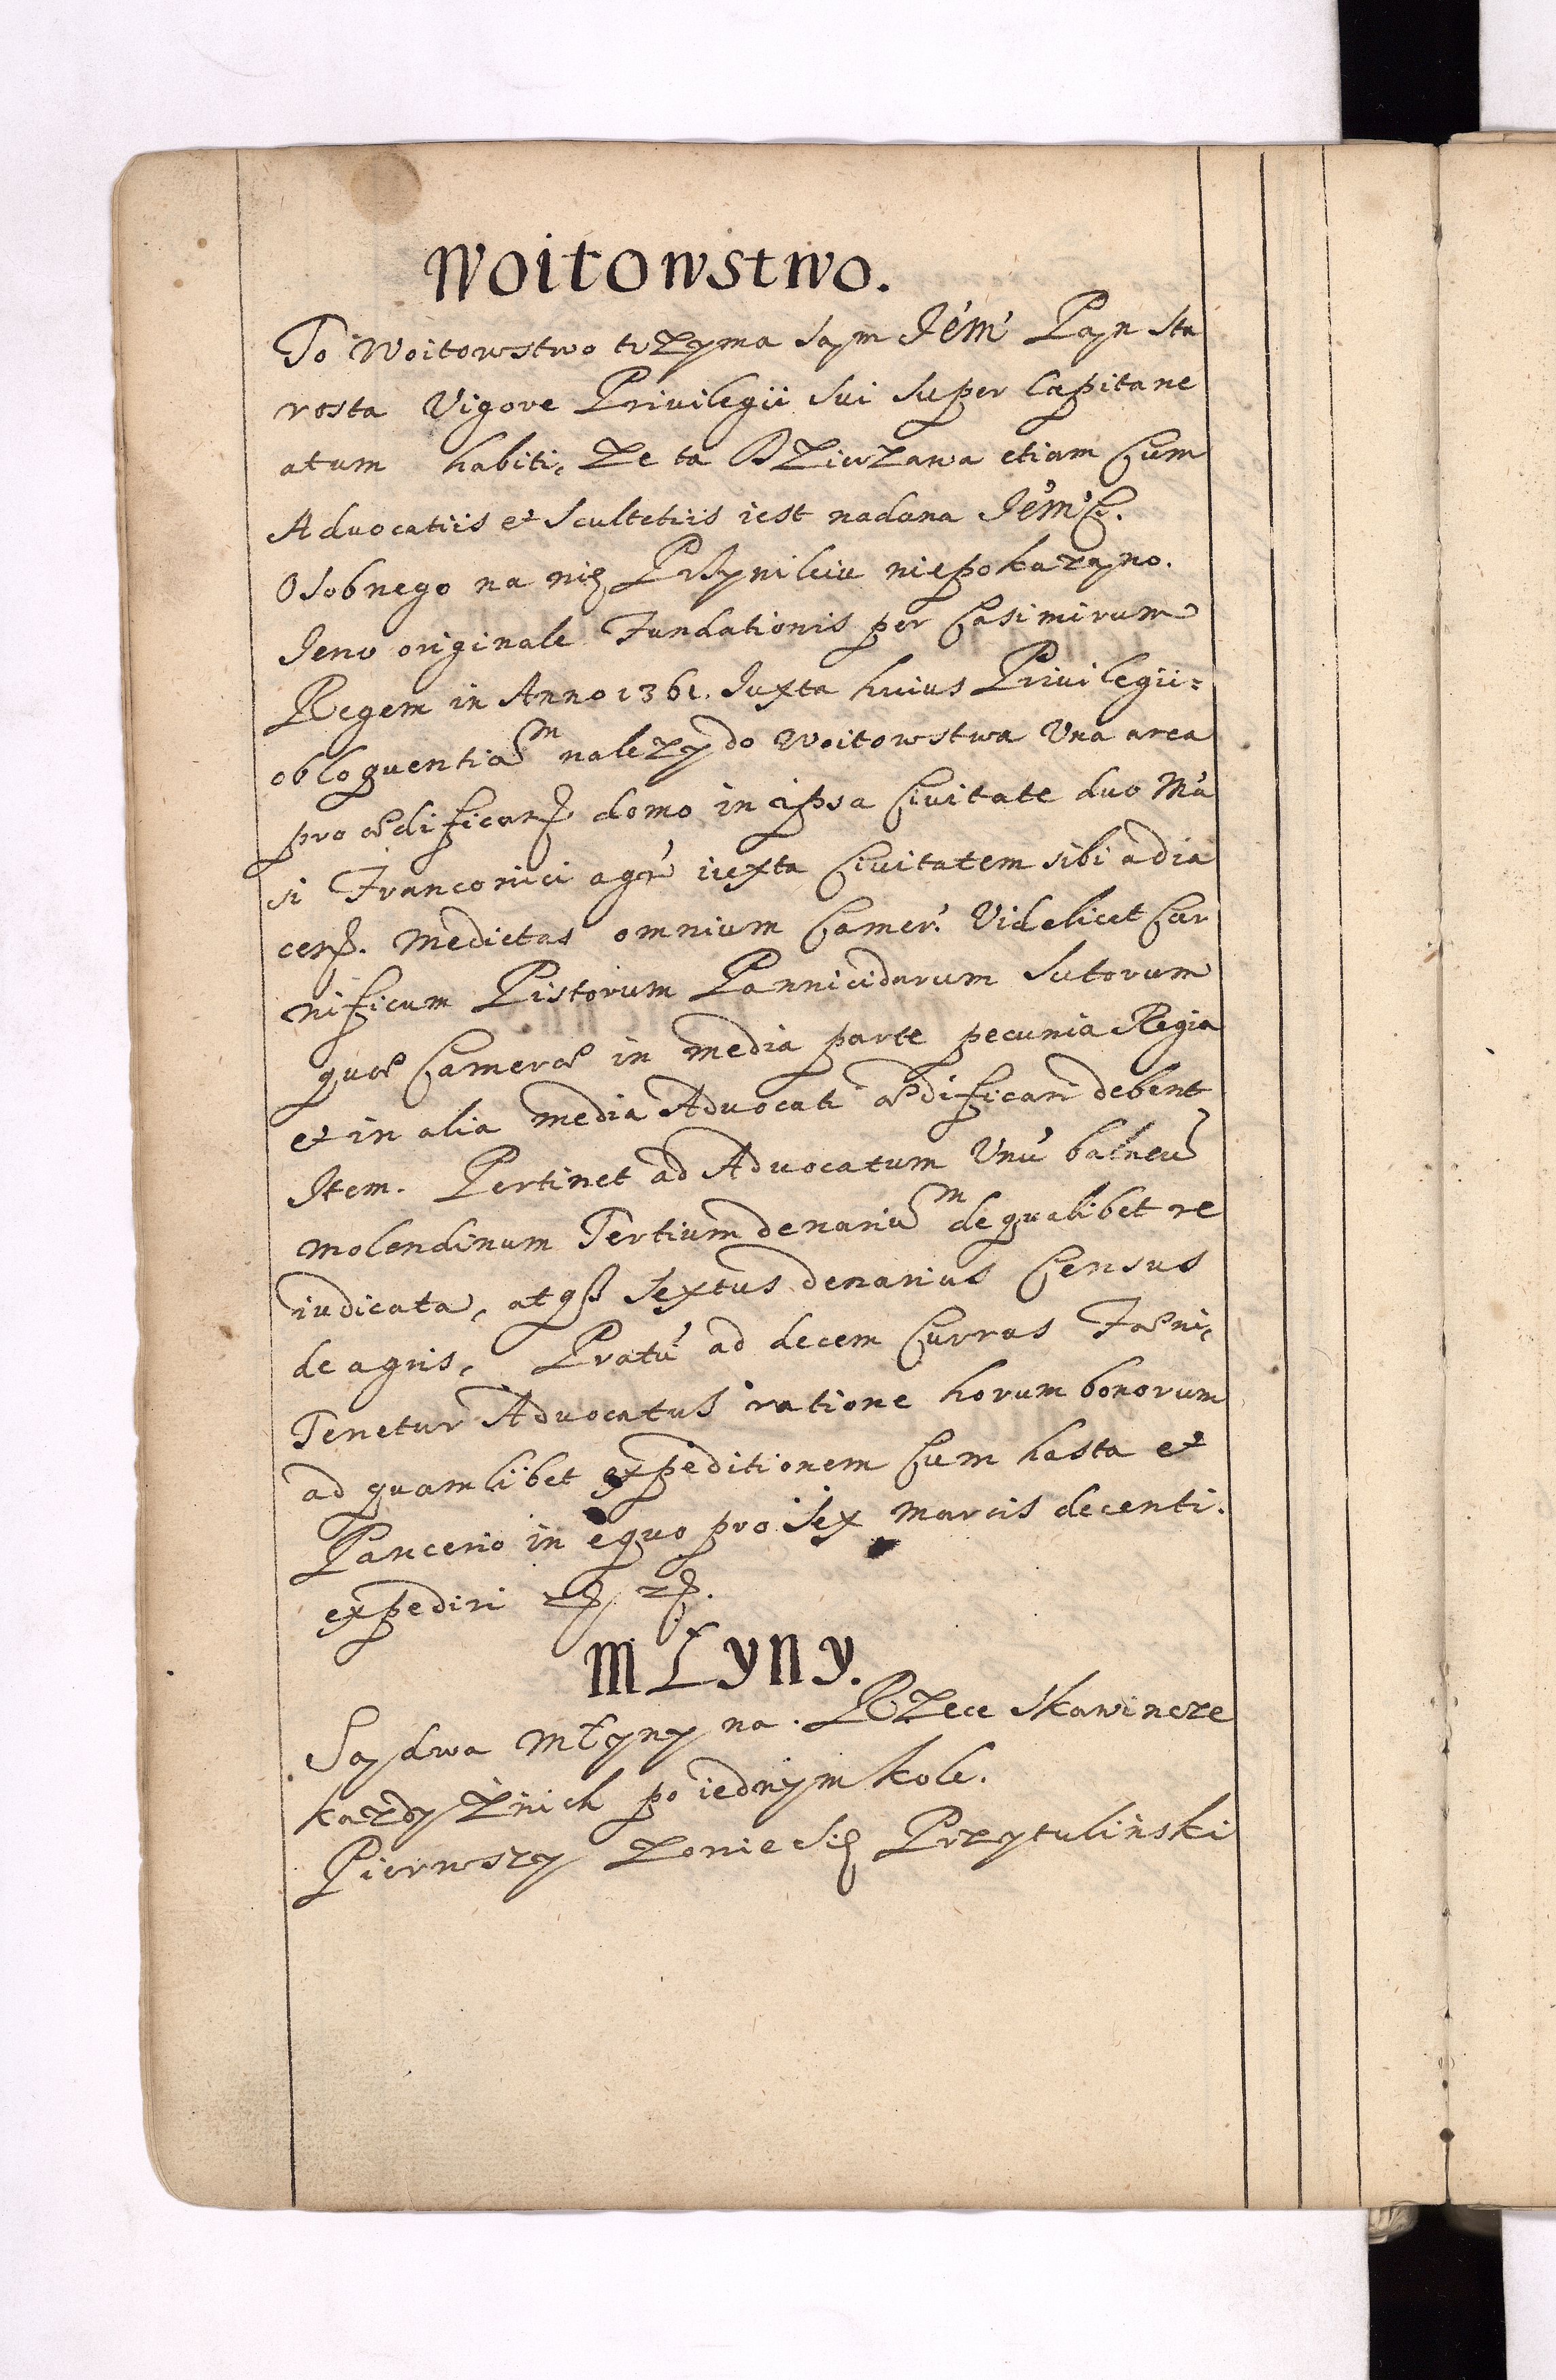 Woitowstwo.
To Woitowstwo trzyma saym Jem Payn sta
rosta Vigore Privilegii sui super Capitane
atum habiti, ze ta Dzierzawa etiam Cum
Advocatiis et Scultetiis iest nadana Jemci.
Osobnego na nię Przywileiu niepokazayno.
Jeno originale Fundationis per Casimirum
Regem in Anno 1361. Juxta huius Privilegii
obloquentiam nalezy do Woitowstwa Una area
pro ædificand domo in ipsa Civitate duo Ma
si Franconici agr iuxta Civitatem sibi adia
cen. Medietas omnium Camer. Videlicet Car
nificum Pistorum Pannicidarum Sutorum
quæ Cameræ in media parte pecunia Regia
et in alia media Advocati ædificari debent
Item. Pertinet ad Advocatum Unu balneu
molendinum Tertium denarium de qualibet re
iudicata, atqz Sextus denarius Census
de agris, Pratu ad decem Currus Fæni,
Tenetur Advocatus ratione horum bonorum
ad quamlibet expeditionem Cum hasta et
Pancerio in equo pro sex marcis decenti.
expediri
Młyny.
Say dwa Młyny na Rzece Skawincze
kazdy znich po iednym kole.
Pierwszy zowie się Przytulinski